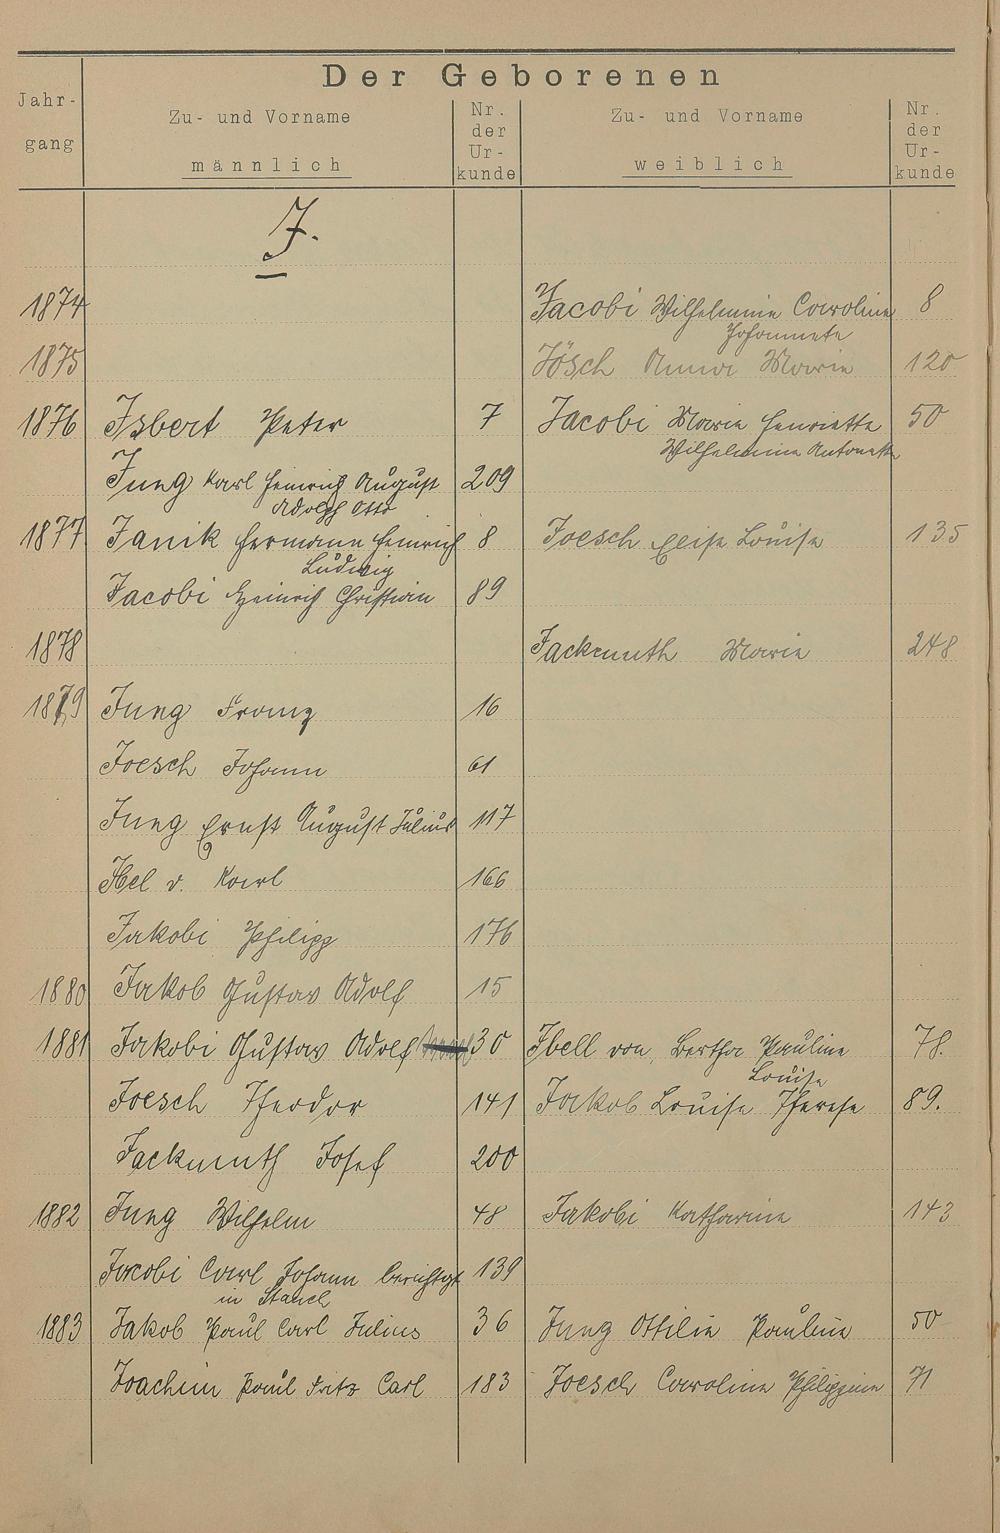 Der Geborenen
Jahr-
gang
Zu- und Vorname
männlich
Nr.
der
Ur-
kunde
Zu- und Vorname
weiblich
Nr.
der
Ur-
kunde
J.
1874 Jacobi Wilhelmine Caroline 8
Johannete
1875 Jösch Anna Marie 120
1876 Isbert Peter 7 Jacobi Marie Henriette 50
Wilhelmine Antonette
Jung Karl Heinrich August 209
Adolph Otto
1877 Janik Hermann Heinrich 8 Joesch Elise Louise 135
Ludwig
Jacobi Heinrich Christian 89
1878 Jackmuth Marie 248
1879 Jung Franz 16
Joesch Johann 61
Jung Ernst August Julius 117
Ibel v. Karl 166
Jakobi Philipp 176
1880 Jakob Gustav Adolf 15
1881 Jakobi Gustav Adolf 30 Ibell von, Bertha Pauline 78.
Louise
Joesch Theodor 141 Jakob Louise Therese 89.
Jackmuth Josef 200
1882 Jung Wilhelm 48 Jakobi Katharine 143
Jacobi Carl Johann berichtigt 139
in Stauch
1883 Jakob Paul Carl Julius 36 Jung Ottilie Pauline 50
Joachim Paul Fritz Carl 183 Joesch Caroline Philippine 71